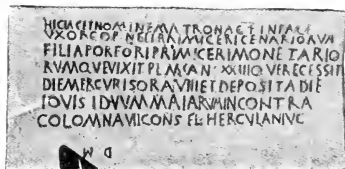 HIC IACET NOMINE MATRONA C F IN FARE
VXOR CORNELI PRIMICERI CENARIORVM
FILIA PORFORI PRIMICERI MONETARIO
RVMQVE VIXIT PLM AN XXIII Q VE RECESSIT
DIE MERCVRIS ORA VIII ET DEPOSITA DIE
IOVIS IDVVM MAIARVM IN CONTRA
COLOMNA VII CONS FL HERCVLANI VC
D M